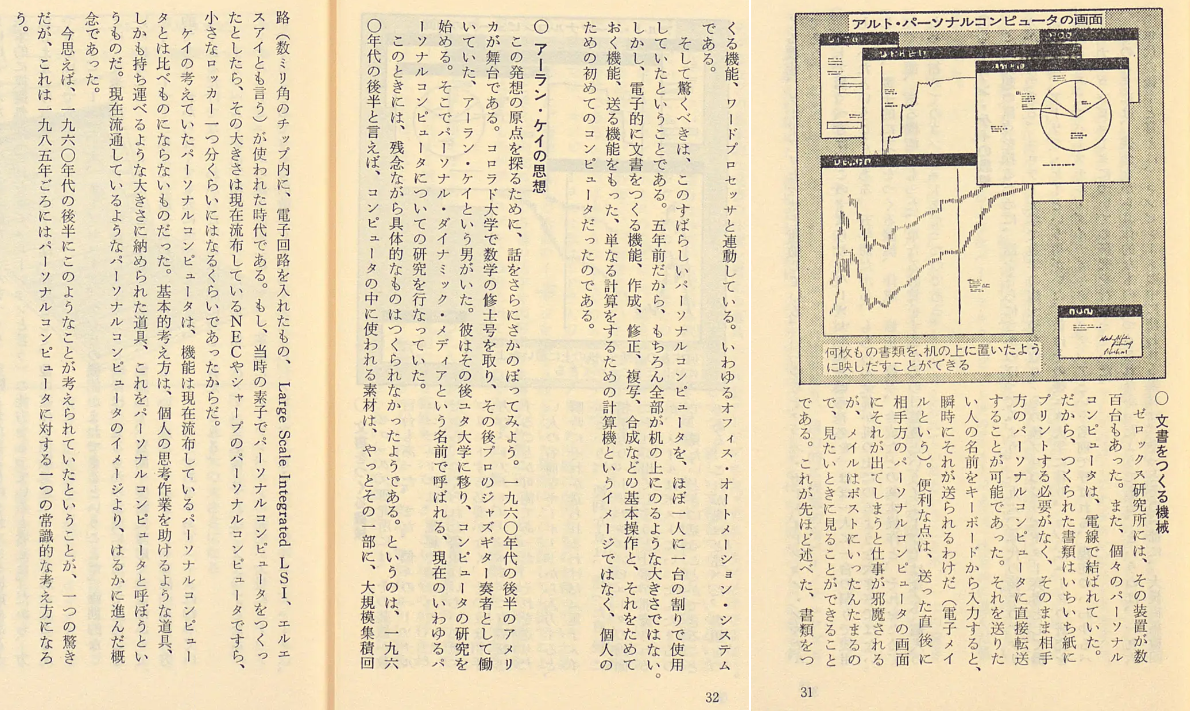 アルト・パーソナルコンピュータの画面
何枚もの書類を、机の上に置いたよう
に映しだすことができる
○ 文書をつくる機械
ゼロックス研究所には、その装置が数
百台もあった。また、個々のパーソナル
コンピュータは、電線で結ばれていた。
だから、つくられた書類はいちいち紙に
プリントする必要がなく、そのまま相手
方のパーソナルコンピュータに直接転送
することが可能であった。それを送りた
い人の名前をキーボードから入力すると、
瞬時にそれが送られるわけだ（電子メイ
ルという）。便利な点は、送った直後に
相手方のパーソナルコンピュータの画面
にそれが出てしまうと仕事が邪魔される
が、メイルはポストにいったんたまるの
で、見たいときに見ることができること
である。これが先ほど述べた、書類をつ
31
くる機能、ワードプロセッサと連動している。いわゆるオフィス・オートメーション・システム
である。
そして驚くべきは、このすばらしいパーソナルコンピュータを、ほぼ一人に一台の割りで使用
していたということである。五年前だから、もちろん全部が机の上にのるような大きさではない。
しかし、電子的に文書をつくる機能、作成、修正、複写、合成などの基本操作と、それをためて
おく機能、送る機能をもった、単なる計算をするための計算機というイメージではなく、個人の
ための初めてのコンピュータだったのである。
○ アーラン・ケイの思想
この発想の原点を探るために、話をさらにさかのぼってみよう。一九六〇年代の後半のアメリ
カが舞台である。コロラド大学で数学の修士号を取り、その後プロのジャズギター奏者として働
いていた、アーラン・ケイという男がいた。彼はその後ユタ大学に移り、コンピュータの研究を
始める。そこでパーソナル・ダイナミック・メディアという名前で呼ばれる、現在のいわゆるパ
ーソナルコンピュータについての研究を行なっていた。
このときには、残念ながら具体的なものはつくられなかったようである。というのは、一九六
〇年代の後半と言えば、コンピュータの中に使われる素材は、やっとその一部に、大規模集積回
32
路（数ミリ角のチップ内に、電子回路を入れたもの、Large Scale Integrated LSI、エルエ
スアイとも言う）が使われた時代である。もし、当時の素子でパーソナルコンピュータをつくっ
たとしたら、その大きさは現在流布しているNECやシャープのパーソナルコンピュータですら、
小さなロッカー一つ分くらいにはなるくらいであったからだ。
ケイの考えていたパーソナルコンピュータは、機能は現在流布しているパーソナルコンピュー
タとは比べものにならないものだった。基本的考え方は、個人の思考作業を助けるような道具、
しかも持ち運べるような大きさに納められた道具、これをパーソナルコンピュータと呼ぼうとい
うものだ。現在流通しているようなパーソナルコンピュータのイメージより、はるかに進んだ概
念であった。
今思えば、一九六〇年代の後半にこのようなことが考えられていたということが、一つの驚き
だが、これは一九八五年ごろにはパーソナルコンピュータに対する一つの常識的な考え方になろ
う。